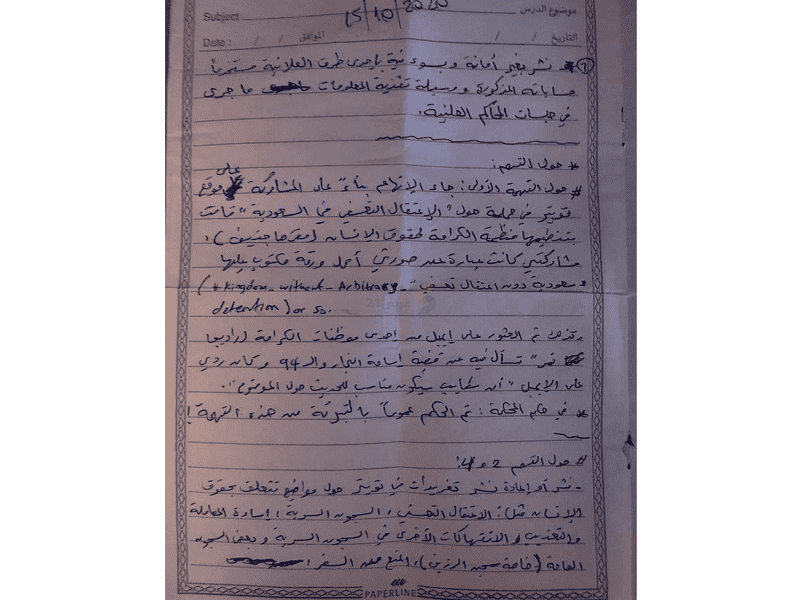 موضوع الدرس Subject
15/10/2020
التاريخ / / الموافق / / Date :
٦ نشر بغير أمانة وبسوء نية بإحدى طرق العلانية مستخدماً
حساباته المذكورة وسيلة تقنية المعلومات ما جرى
في جلسات المحاكم العلنية.
* حول التهم:
# حول التهمة الأولى: جاء الإتهام بناءً على المشاركة على موقع
تويتر في حملة حول "الإعتقال التعسفي في السعودية" قامت
بتنظيمها منظمة الكرامة لحقوق الانسان (مقرها جنيف).
مشاركتي كانت عبارة عن صورتي أحمل ورقة مكتوب عليها
سعودية دون اعتقال تعسفي - Kingdom_without_Arbitrary#)
detention) or so.
وكذلك تم العثور على إيميل من إحدى موظفات الكرامة
تسأل فيه عن قضية أسامة النجار والـ 94 وكان ردي
على الإيميل "أن سيكون مناسب للحديث حول الموضوع".
* في حكم المحكمة: تم الحكم عموماً بالتبرئة من هذه التهمة!
# حول التهم 2 و 4:
- نشر أو إعادة نشر تغريدات في تويتر حول مواضيع تتعلق بحقوق
الإنسان مثل: الاعتقال التعسفي، السجون السرية، إساءة المعاملة
والتعذيب والانتهاكات الأخرى في السجون السرية وبعض السجون
العامة (خاصة سجن الرزين)، المنع من السفر،
PAPERLINE